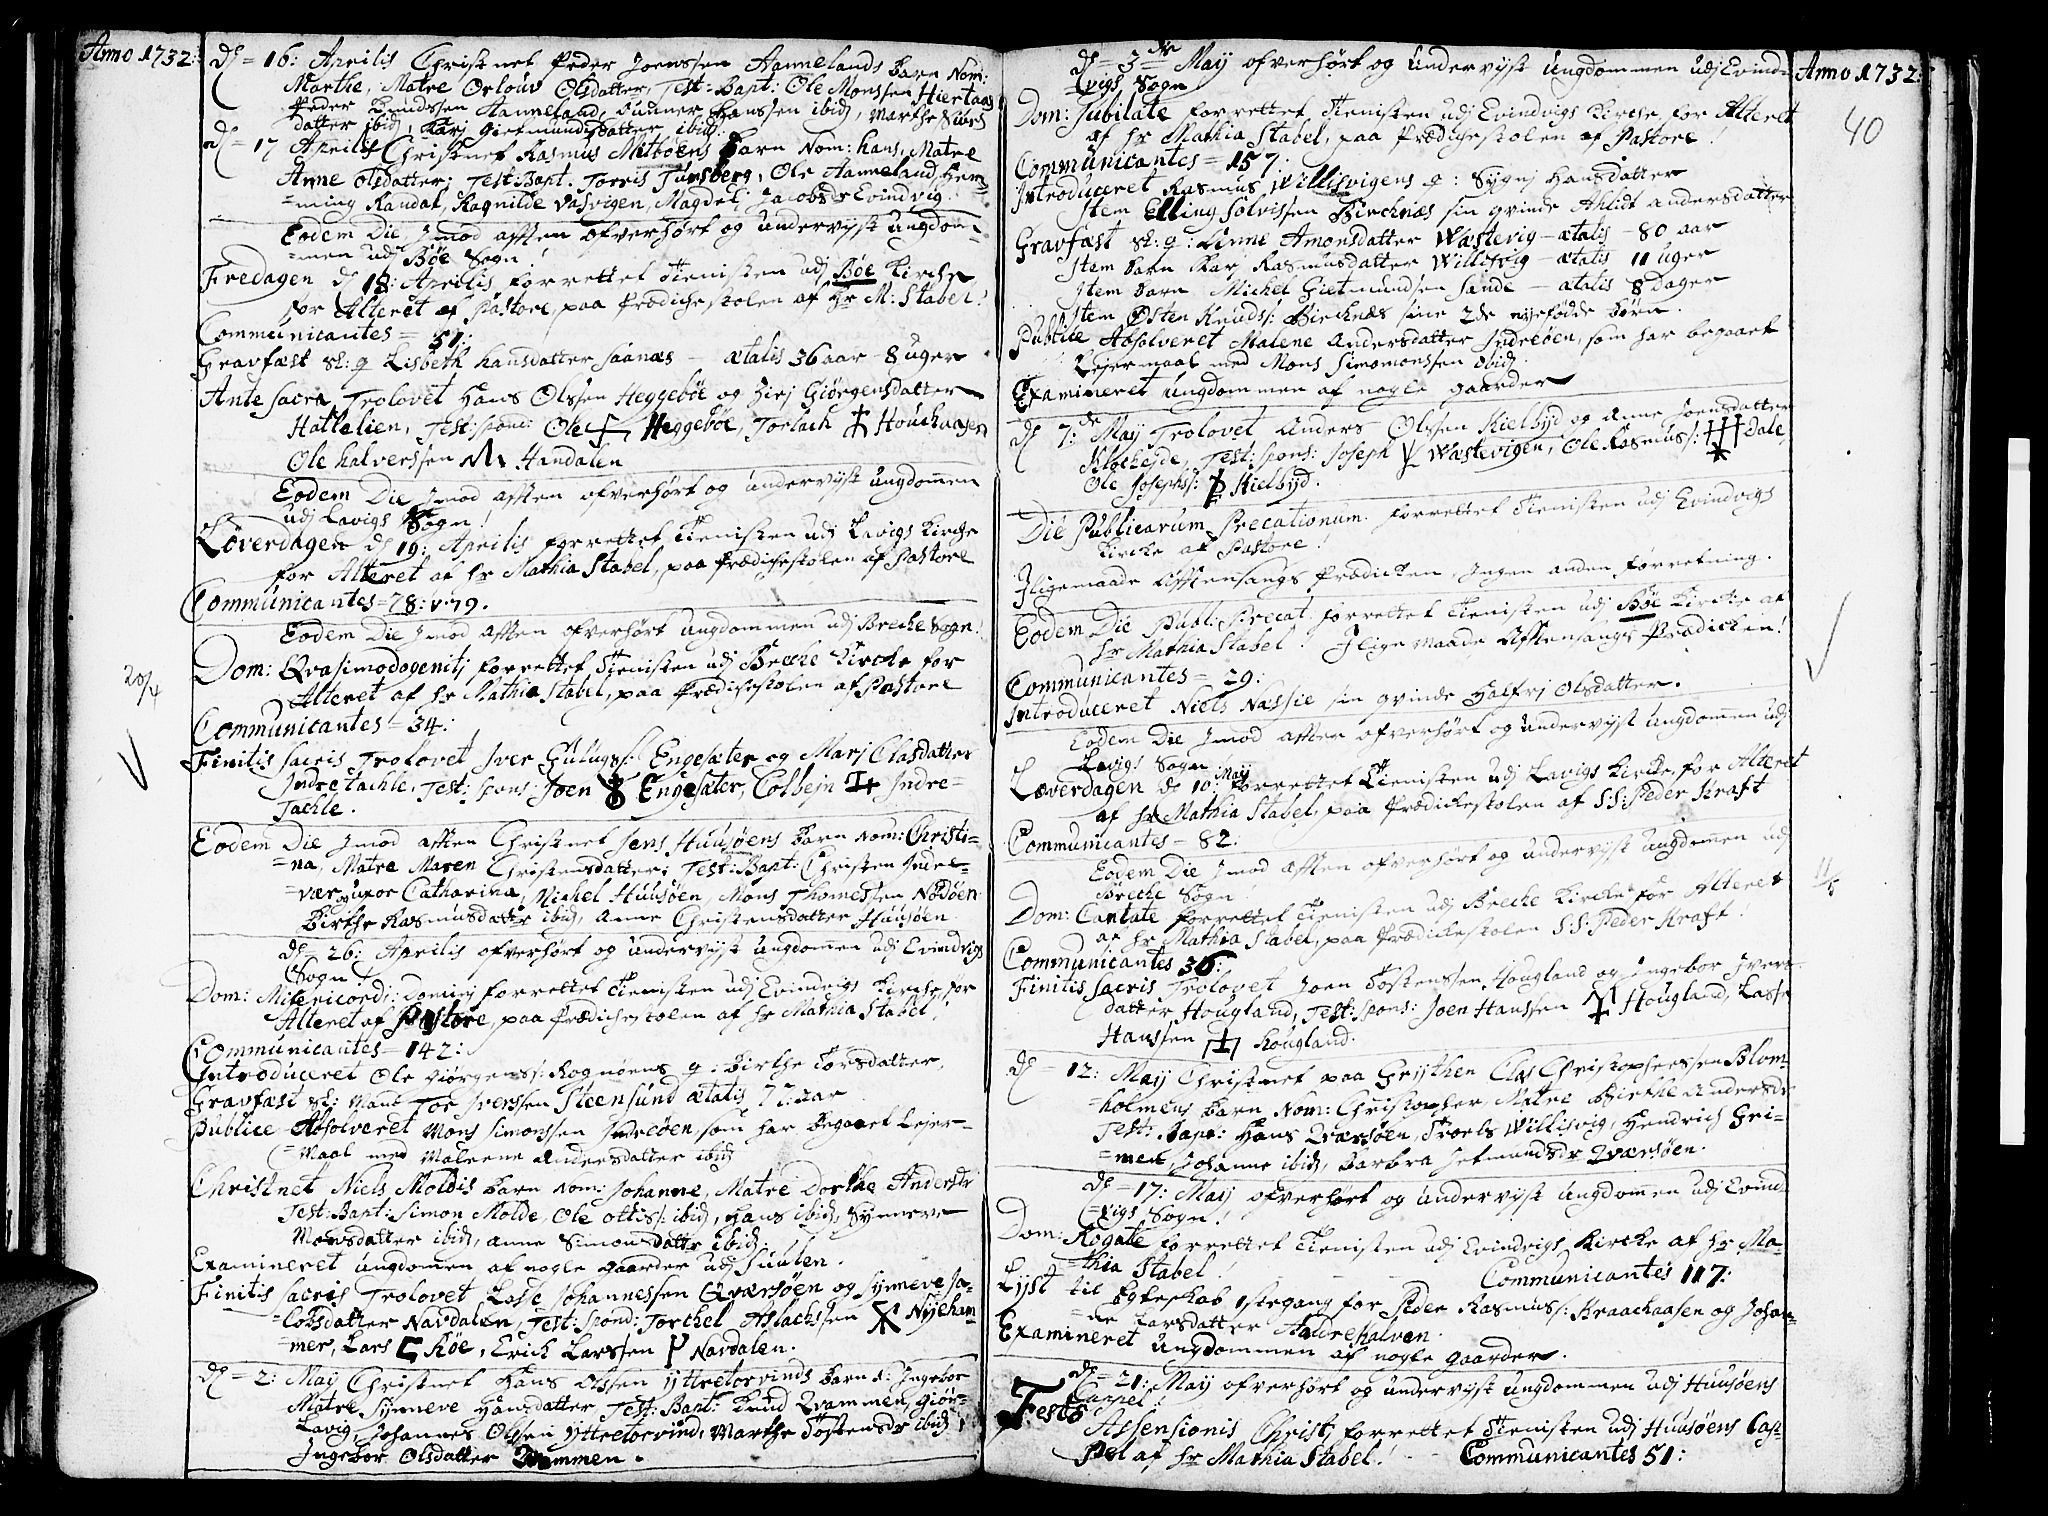 Anno 1732:
d: = 16: Aprilis Christnet Peder Joensen Aannelands barn Nom:
Marthe, Matre Orlouv Olsdatter, Test: Bapt: Ole Monssen Hiertaas
Peder Knudssen Aanneland, Gunner Hanssen ibid, Marthe Siurs
datter ibid, Karj Gietmundsdatter ibid.
d: = 17 Aprilis Christnet Rasmus Mittøens barn Nom: hans, Matre
Anne Olsdatter; Test: Bapt. Torris Tunsberg, Ole Aanneland, Hem-
=ming Randal, Ragnilde Vasvigen, Magdel: Jacobsdr Evindvig.
Eodem Die imod afften ofverhørt og undervijst ungdom-
=men udj Bøe Sogn!
Fredagen d: 18: Aprilis forrettet Tienisten udj Bøe Kirche
for Alteret af Pastore, paa Prædichestolen af Hr M: Stabel!
Communicantes = 51:
Gravfæst Sl: q Lisbeth hansdatter Saanæs - ætatis 36 aar - 8 uger
Ante Sacra, Trolovet Hans Olssen Heggebøe og Zirj Giørgensdatter
Hattelien, Test: spons: Ole Heggebøe, Torlach Houchaasen
Ole halverssen Handalen
Eodem Die imod afften ofverhørt og undervijst ungdommen
udj Lavigs Sogn!
Løverdagen d: 19: Aprilis forrettet Tienisten udj Lavigs Kirche
for Alteret af hr Mathia Stabel, paa Prædichestolen af Pastore
Communicantes = 78: v. 79.
Eodem Die imod afften ofverhørt ungdommen udj Breche Sogn!
Dom: Qvasimodogenitj forrettet Tienisten udj Breche Kirche for
Alteret af hr Mathia Stabel, paa Prædichestolen af Pastore
20/4
Communicantes - 34:
Finitis Sacris Trolovet Iver Gulugs: Engesæter og Marj Clasdatter
Indretachle, Test: spons: Joen Engesæter, Colbejn Indre=
Tachle.
Eodem Die imod afften Christnet Jens Huusøens barn Nom: Christi-
=na, Matre Maren Christensdatter; Test: Bapt: Christen Indre-
=vær og uxor Catharina, Michel Huusøen, Mons Thomessen Nødøen
Birthe Rasmusdatter ibid, Anne Christensdatter Huusøen
d: = 26: Aprilis ofverhørt og undervijst ungdommen udj Evindvigs
Sogn
Dom: Misericord: Dominj forrettet Tienisten udj Evindvigs Kirche, for
Alteret af Pastore, paa Prædichestolen af hr Mathia Stabel!
Communicantes - 142:
Introduceret Ole Giørgens: Rognøens q: Birthe Torsdatter,
Gravfæst Sl: Mand Tor Iverssen Steensund ætatis 77: aar
Publice Absolveret Mons Simonssen Indreøen, som har begaaet Lejer-
=maal med Maleene Andersdatter ibid
Christnet Niels Moldis barn Nom: Johanne, Matre Dorthe Andersdr
Test: Bapt: Simon Molde, Ole Ottis: ibid, Hans ibid, Synneve
Monsdatter ibid, Anne Simonsdatter ibid.
Examineret ungdommen af nogle gaarder udj Suulen.
Finitis Sacris Trolovet Lasse Johannessen Qværøen og Synneve Ja-
=cobsdatter Nardalen, Test: spons: Torchel Aslachssen Nyeham-
mer, Lars Røe, Erich Larssen Nardalen.
d: = 2: Maij Christnet Hans Olssen Yttretorvinds barn N: Ingebor
Matre Synneve Hansdatter, Test: Bapt: Knud Qvammen, Giør-
Lavig, Johannes Olssen Yttretorvind, Marthe Tostensdr ibid,
Ingebor Olsdatter Qvammen.
d: = 3de Maij ofverhørt og undervijst ungdommen udj Evind-
vigs Sogn
Anno 1732:
40
Dom: Jubilate forrettet Tienisten udj Evindvigs Kirche for Alteret
af hr Mathia Stabel, paa Prædichestolen af Pastore!
Communicantes = 157:
Introduceret Rasmus Willisvigens q: Sygnj Hansdatter
Item Elling Solvissen Birchnæs sin qvinde Ahlidt Andersdatter
Gravfæst Sl: q: Linne Amonsdatter Wæstevig - ætatis - 80 aar
Item barn Karj Rasmusdatter Willisvig - ætatis 11 uger
Item barn Michel Gietmundsen Sande - ætatis 8 dager
Item Østen Knuds: Birchnæs sine 2de nyefødde børn.
Publice Absolveret Malene Andersdatter Indreøen, som har begaaet
Lejermaal med Mons Simonssen ibid
Examineret ungdommen af nogle gaarder
d: 7: de Maij Trolovet Anders Olssen Kielbyd og Anne Joensdatter
Klochejde, Test: spons: Joseph Wæstevigen, Ole Rasmus: Dale,
Ole Josephs: Kielbyd.
Die Publicarum Precationum forrettet Tienisten udj Evindvigs
Kirche af Pastore!
Iligemaade Afftensangs Prædichen, Ingen anden forretning.
Eodem Die Publ: Precat forrettet Tienisten udj Bøe Kirche af
hr Mathia Stabel! Iligemaade Afftensangs Prædichen!
Communicantes = 29:
Introduceret Niels Næssie sin qvinde Halfrj Olsdatter.
Eodem Die imod afften ofverhørt og undervijst ungdommen udj
Lavigs Sogn
Løverdagen de 10: Maij forrettet Tienisten udj Lavigs Kirche, for Alteret
af hr Mathia Stabel, paa Prædichestolen af S: S: Peder Kraft
Communicantes - 82.
Eodem Die imod afften ofverhørt og undervijst ungdommen udj
Breche Sogn!
11/5
Dom: Cantate forrettet Tienisten udj Breche Kirche for Alteret
af hr Mathia Stabel, paa Prædichestolen S: S: Peder Kraft!
Communicantes 36:
Finitis Sacris Trolovet Joen Tostenssen Hougland og Ingebor Ivers-
datter Hougland, Test: spons: Joen Hanssen Hougland, Lasse
Hanssen Hougland.
d: - 12: Maij Christnet paa Grijthen Clas Christophersen Blom-
=holmens barn Nom: Christopher, Matre Birthe Andersdr
Test: Bapt: Hans Qværøen, Troels Willisvig, Hendrich Gri-
=men, Johanne ibid, Barbra Jetmundsdr Qværøen.
d: - 17: Maij ofverhørt og undervijst ungdommen udj Evind-
=vigs Sogn!
Dom: Rogate forrettet Tienisten udj Evindvigs Kirche af hr Ma-
=thia Stabel! Communicantes 117:
Lyst til Egteskab 1ste gang for Peder Rasmus: Kraachaasen og Johan-
ne Larsdatter Andreshalven.
Examineret ungdommen af nogle gaarder.
d: - 21: Maij ofverhørt og undervijst ungdommen udj Huusøens
Cappel!
Festo Assensionis Christj forrettet Tienisten udj Huusøens Cap-
pel af hr Mathia Stabel! - Communicantes 51: